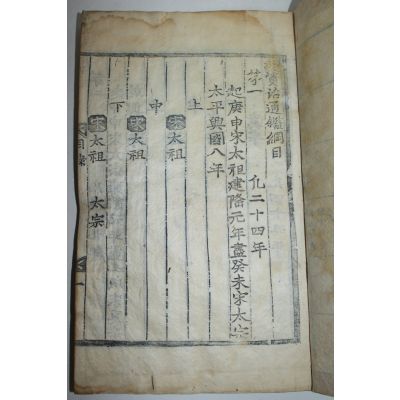 資治通鑑綱目
第一 凡二十四年
起庚申宋太祖建隆元年盡癸未宋太宗
太平興國八年
上
宋太祖
中
宋太祖
下
宋太祖 太宗